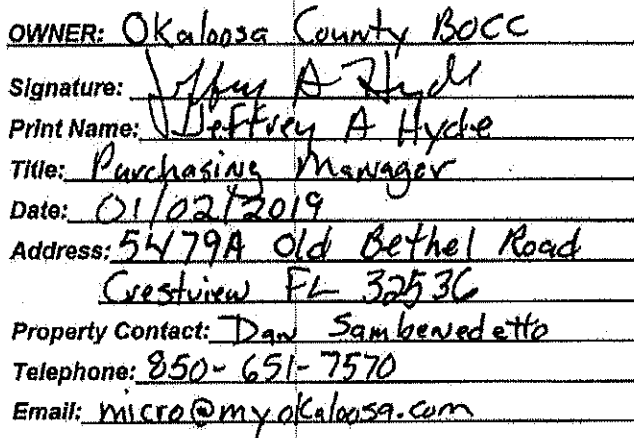 OWNER: Okaloosa County BOCC
Signature: Jeffrey A Hyde
Print Name: Jeffrey A Hyde
Title: Purchasing Manager
Date: 01/02/2019
Address: 5479A Old Bethel Road
Crestview FL 32536
Property Contact: Dan Sambenedetto
Telephone: 850-651-7570
Email: micro@myokaloosa.com